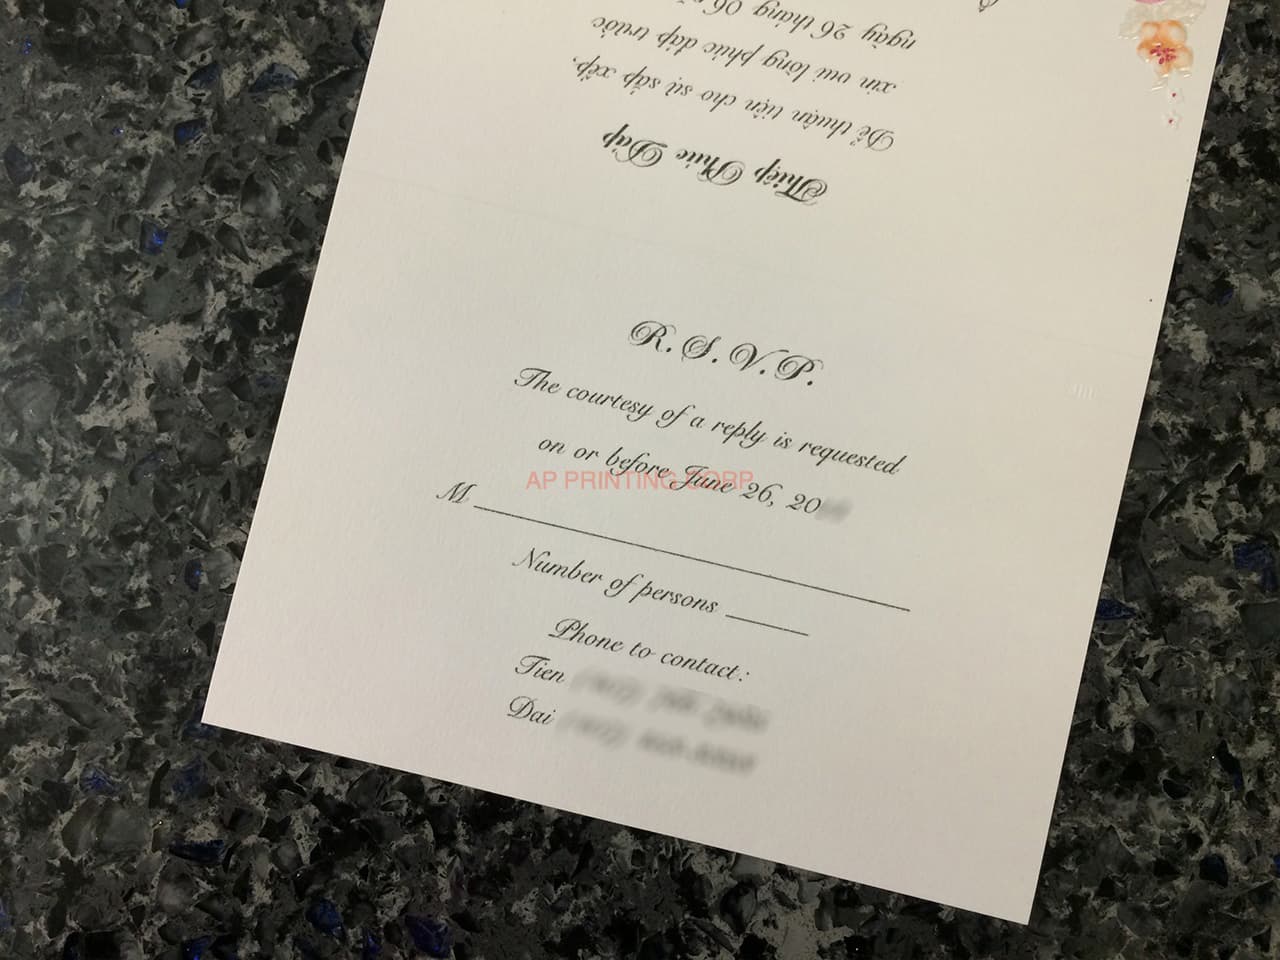 Thiệp Phúc Đáp
Để thuận tiện cho sự sắp xếp,
xin vui lòng phúc đáp trước
ngày 26 tháng 06
R.S.V.P.
The courtesy of a reply is requested
on or before June 26, 20
AP PRINTING CORP
M
Number of persons
Phone to contact:
Tien
Dai